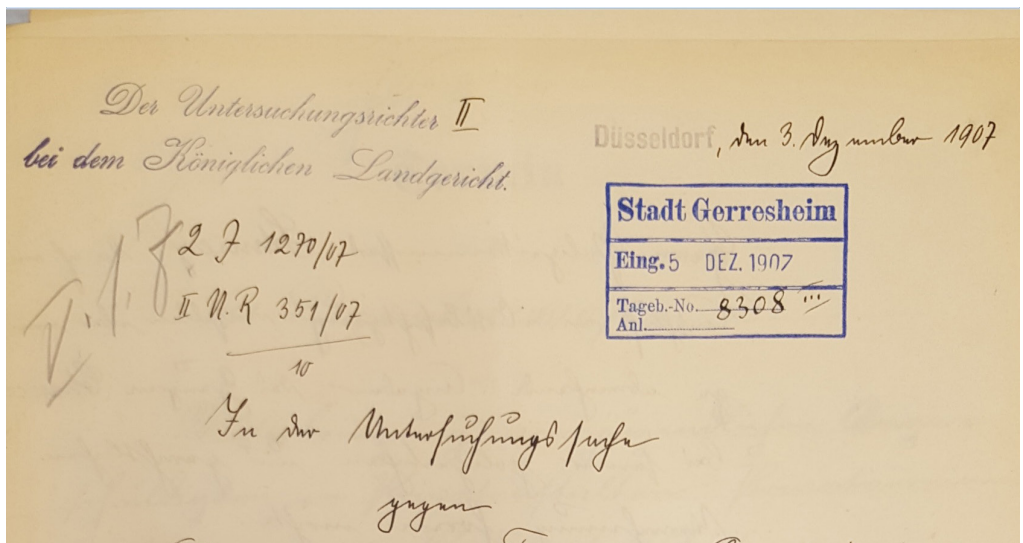 Der Untersuchungsrichter II
bei dem Königlichen Landgericht.
Düsseldorf, den 3. Dezember 1907
Stadt Gerresheim
Eing. 5 DEZ. 1907
Tageb.-No. 8308 III
Anl.
2 J 1270/07
II U.R 351/07
10
In der Untersuchungssache
gegen